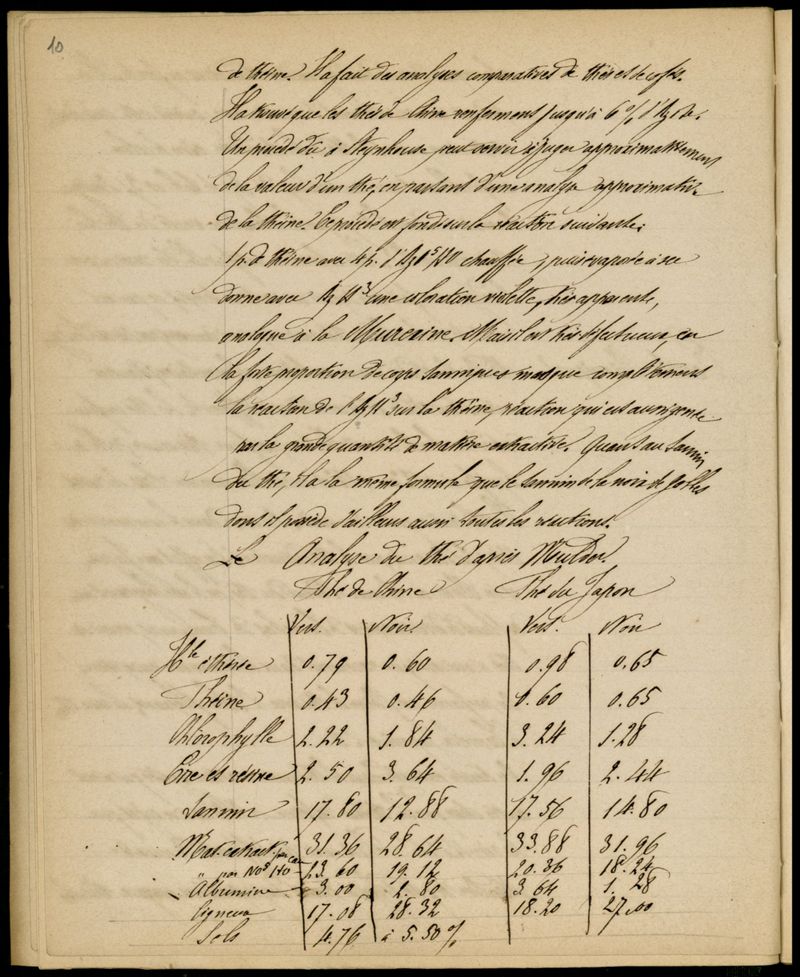 10
de théine. Il a fait des analyses comparatives de thés et de cafés.
Il a trouvé que les thés de Chine renferment jusqu'à 6 % d'Az de.
Un procédé dû à Steynhouse peut servir à juger approximativement
de la valeur d'un thé, en partant d'une analyse approximative
de la théine. Ce procédé est fondé sur la réaction suivante:
1 p. de théine avec 4 p. d'AzO5,HO chauffée, puis évaporée à sec
donne avec AzH3 une coloration violette, très apparente,
analogue à la Murexine. Mais il est très défectueux, car
la forte proportion de corps tanniques masque complètement
la réaction de l'AzH3 sur la théine, réaction qui est aussi gênée
par la grande quantité de matière extractive. Quant au tannin
du thé, il a la même formule que le tannin de la noix de Galles
dont il possède d'ailleurs aussi toutes les réactions.
Le Analyse du thé d'après Mulder.
Thé de Chine Thé du Japon
Vert. Noir. Vert. Noir
Hle éthérée 0.79 0.60 0.98 0.65
Théine 0.43 0.46 0.60 0.65
Chlorophylle 2.22 1.84 3.24 1.28
Cire et résine 2.50 3.64 1.96 2.44
Tannin 17.80 12.88 17.56 14.80
Mat. extract. par eau 31.36 28.64 33.88 31.96
" par HO 23.60 19.12 20.36 18.24
Albumine 3.00 2.80 3.64 1.28
Ligneux 17.08 28.32 18.20 27.00
Sels 4.76 à 5.50 %